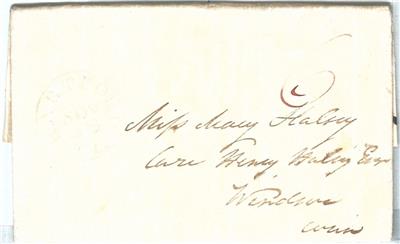 6
Miss Mary Halsey
Care Henry Halsey Esqr
Windsor
Conn